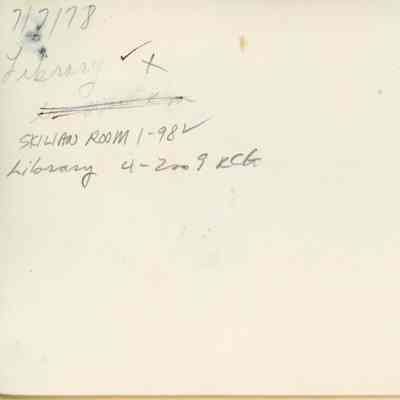 7/7/78
Library ✓ X
SKILIAN ROOM 1-98 ✓
Library 4-2009 RCG